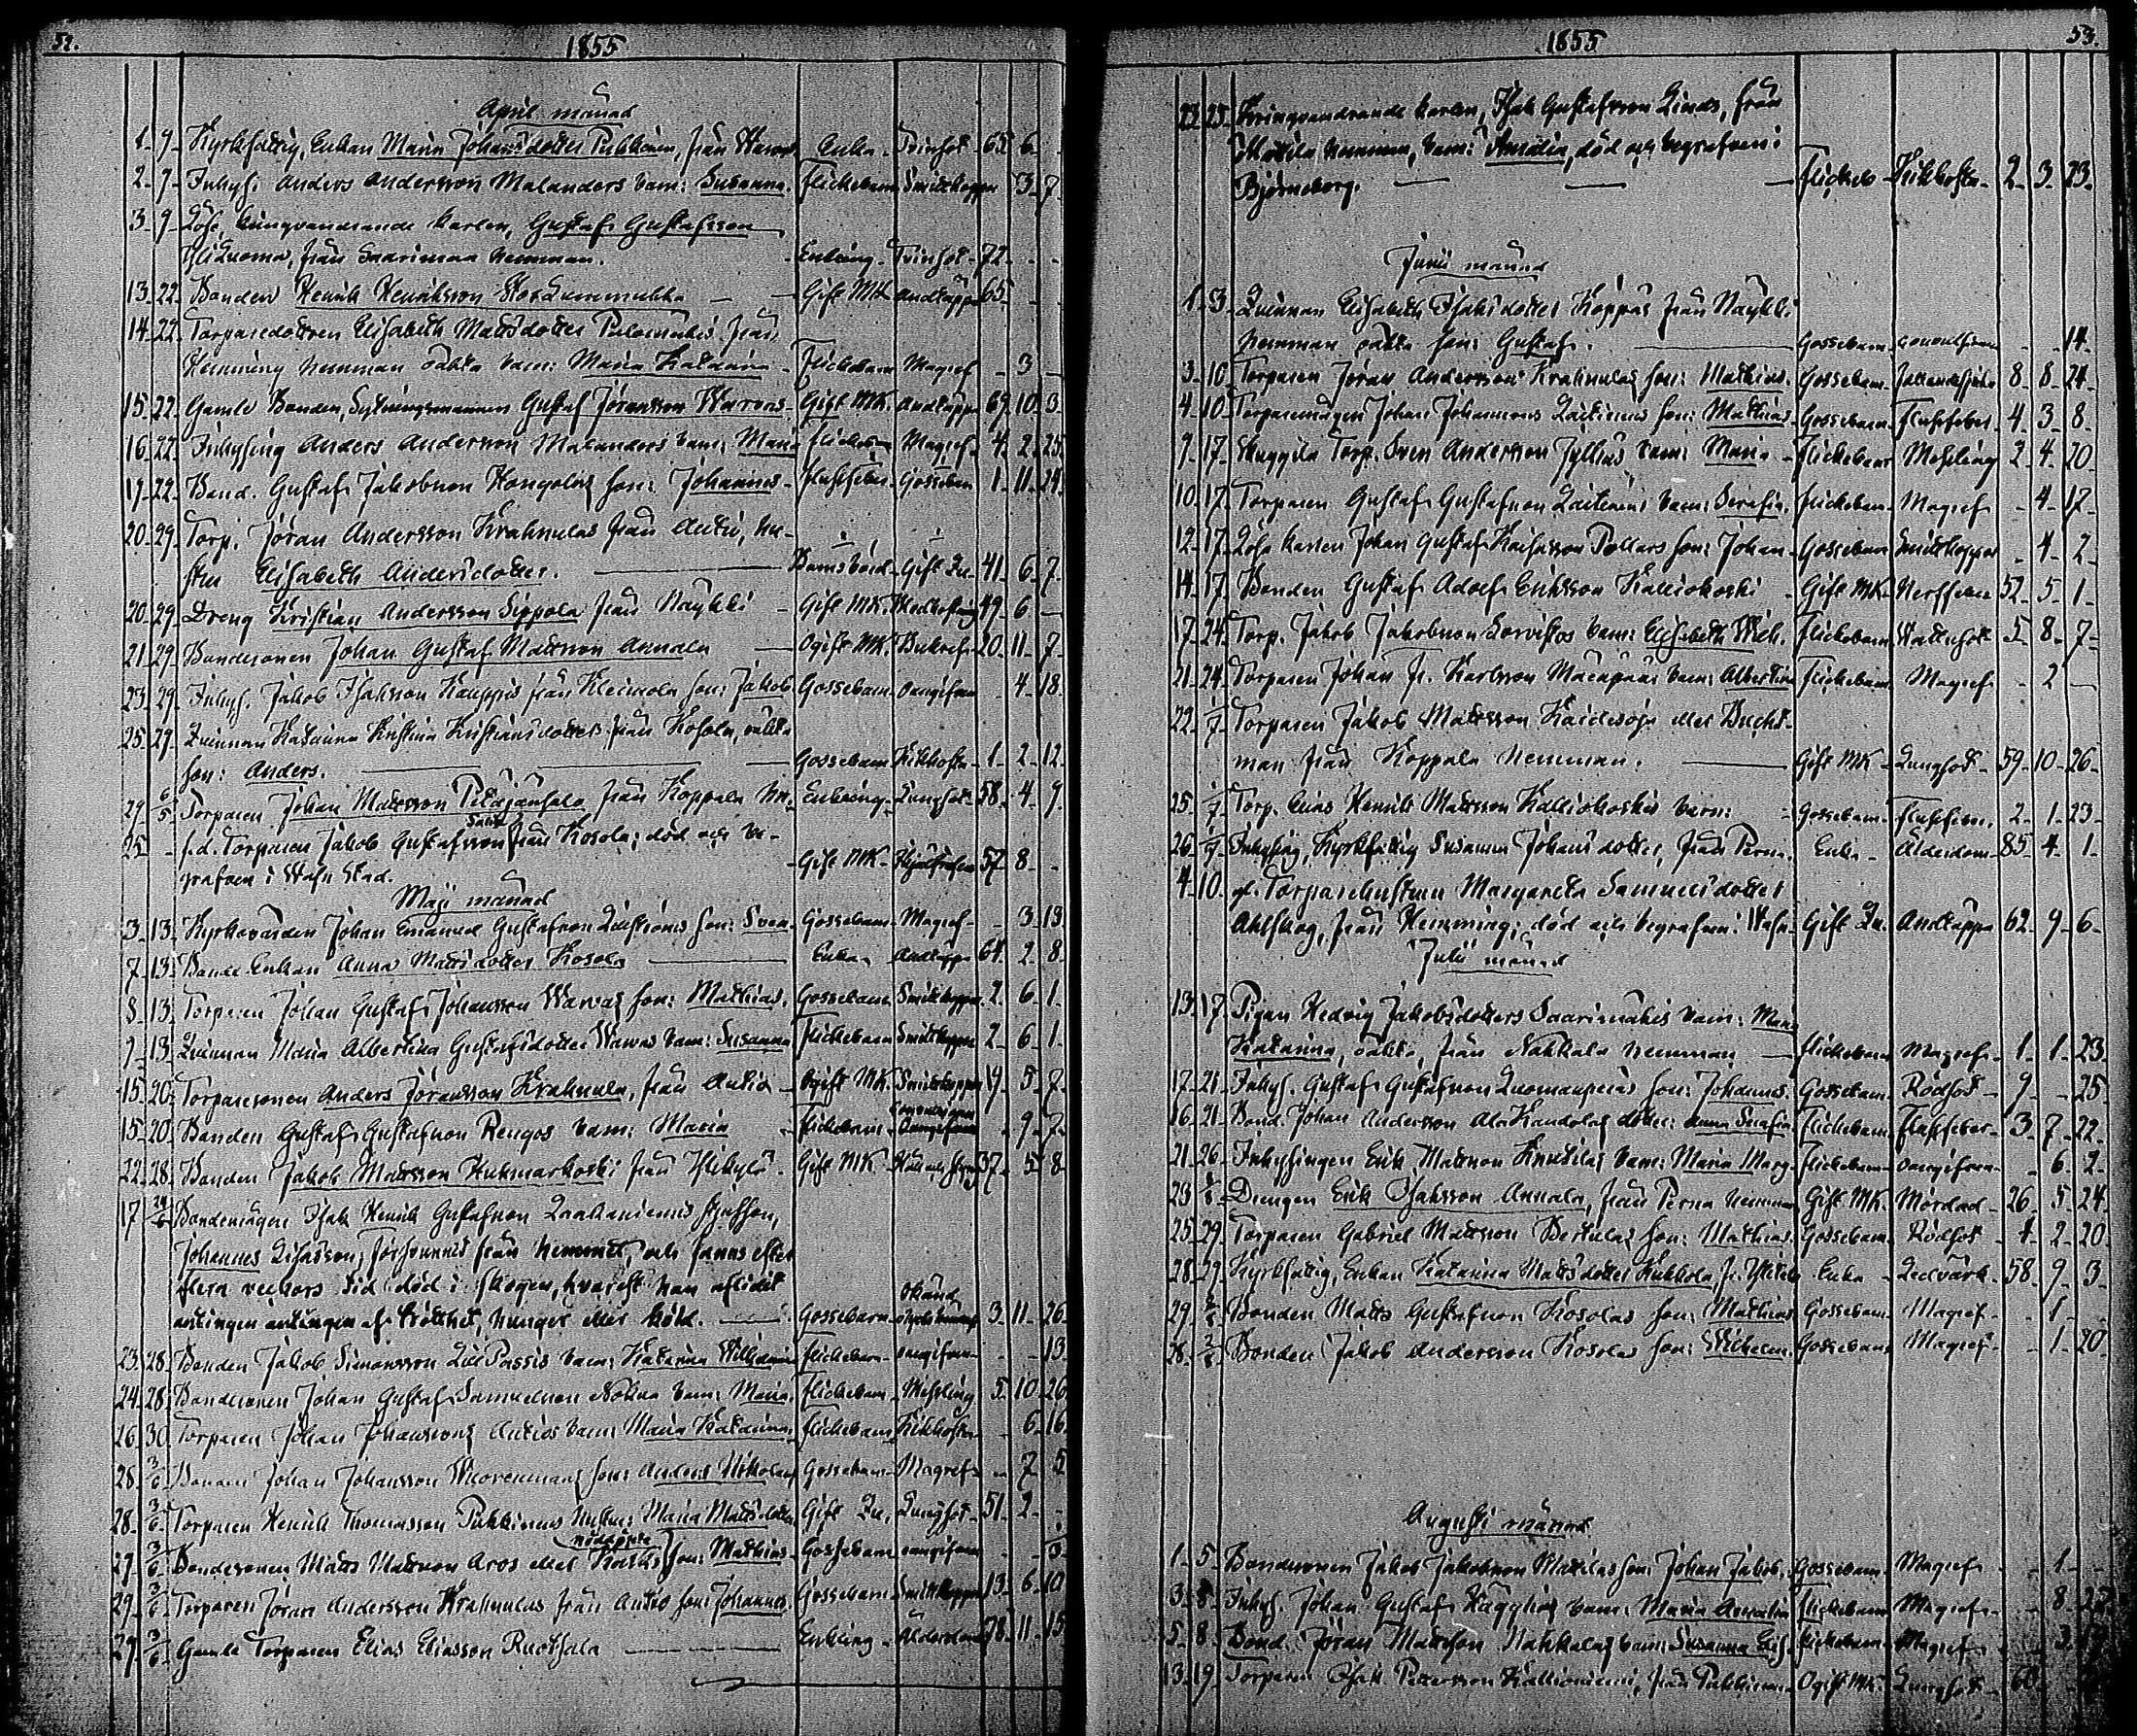 52.
1855
April månad
1. 9. Kyrkfattig, Enkan Maria Johansdotter Pukkinen, från Warvas Enka. Tvinsot 65. 6.
2. 9. Inhys. Anders Andersson Malanders barn: Susanna. Flickebarn Smittkoppor 3. 7.
3. 9. Löse, kringvandrande karlen, Gustaf Gustafsson
YliLuoma, från Saarimaa hemman. Enkling. Tvinsot 72.
13. 22. Bonden Henrik Henriksson StorLummukka Gift MK. Andtäppa 65.
14. 22. Torparedottren Elisabeth Mattsdotter från
Hemming hemman oäkta barn: Maria Katarina Flickebarn Magref 3
15. 22. Gamle Bonden, Sytningsmannen Gustaf Jöransson Warvas Gift MK. Andtäppa 69. 10. 3.
16. 22. Inhysing Anders Andersson Malanders barn: Maria Flickebarn Magref. 4. 2. 25.
17. 22. Bond. Gustaf Jakobsson Kangolas son: Johannes Flussfeber Gossebarn 1. 11. 24.
20. 29. Torp. Jöran Andersson Krahnulas från Autio, hu-
stru Elisabeth Andersdotter. Barnsbörd. Gift Qu. 41. 6. 7.
20. 29. Dreng Kristian Andersson Sippola från Näykki Gift MK. 49. 6
21. 29. Bondesonen Johan Gustaf Mattsson Annala Ogift MK. Bukref 20. 11. 7.
23. 29. Inhys. Jakob Isaksson Kauppis från Kleimola son: Jakob Gossebarn oangifven 4. 18.
25. 29. Quinnan Katarina Kristina Kristiansdotters från Kosola, oäkta
son: Anders. Gossebarn Kikhosta 1. 2. 12.
29. 6/5 Torparen Johan Mattsson från Koppala hn. Enkling. Lungsot 58. 4. 9.
25. f.d. Torparen Jakob Gustafsson från Kosola; död och be-
grafven i Wasa Stad. Gift MK. 57 8
Maji månad
3. 13. Kyrkovärden Johan Emanuel Gustafsson son: Sven Gossebarn Magref. 3. 13.
7. 13. Bonde Enkan Anna Mattsdotter Kosola Enka. Andtäppa 64. 2. 8.
8. 13. Torparen Johan Gustaf Johansson Warvas son: Mathias. Gossebarn Smittkoppor 2. 6. 1.
9. 13. Quinnan Maria Albertina Gustafsdotter Warvas barn: Susanna Flickebarn Smittkoppor 2. 6. 1.
15. 20. Torparesonen Anders Jöransson Krahnula, från Autio Ogift MK. Smittkoppor 19. 5. 7.
15. 20. Bonden Gustaf Gustafsson Rengos barn: Maria Flickebarn 9. 7.
22. 28. Bonden Jakob Mattsson Huhmarkoski från Ylikylä. Gift MK. Håll och styng 37. 5. 8.
17 24/6 Bondemågen Isak Henrik Gustafsson styfson,
Johannes försvunnit från hemmet, och fanns efter
flera veckors tid död i skogen, hvarest han aflidit
antingen antingen af trötthet, hunger eller köld. Gossebarn okänd 3. 11. 26.
23. 28. Bonden Jakob Simonsson LillPassis barn: Katarina Wilhelmina Flickebarn oangifven 13.
24. 28. Bondesonen Johan Gustaf Samuelsson barn: Maria. Flickebarn Mässling 5. 10. 26.
26. 30. Torparen Johan Johanssons Autios barn: Maria Katarina Flickebarn Kikhosta 6. 16.
28. 3/6 Bonden Johan Johansson Wuorenmaas son: Anders Nikolaus Gossebarn Magref 7. 5
28. 3/6 Torparen Henrik Thomasson Pukkinens hustru: Maria Mattsdotter Gift Qu. Lungsot 51. 2.
27. 3/6 Bondesonen Matts Mattsson Aros eller nöddöpte son: Mathias Gossebarn oangifven 3.
29. 3/6 Torparen Jöran Andersson Krahnulas från Autio son: Johannes. Gossebarn Smittkoppor 13. 6. 10
29. 3/6 Gamle Torparen Elias Eliasson Ruotsala Enkling Ålderdom 78. 11. 15
1855
53.
23. 25. Kringvandrande karlen, Isak Gustafsson Linds, från
Mattila hemman, barn: Amalia, död och begrafven i
Björneborg. Flickeb. Kikhosta 2. 3. 23.
Junii månad
1. 3. Quinnan Elisabeth Isaksdotter Koppas från Näykki
hemman oäkta son: Gustaf. Gossebarn 14.
3. 10. Torparen Jöran Andersson Krahnulas son: Mathias. Gossebarn 8. 8. 24.
4. 10. Torparemågen Johan Johanssons Laitinens son: Mathias Gossebarn Flussfeber 4. 3. 8.
9. 17. Torp. Sven Andersson Jyllias barn: Maria Flickebarn Mässling 2. 4. 20.
10. 17. Torparen Gustaf Gustafsson Laitinens barn: Serafia. Flickebarn Magref 4. 17.
12. 17. Lösa karlen Johan Gustaf Pollars son: Johan Gossebarn Smittkoppor 4. 2.
14. 17. Bonden Gustaf Adolf Eriksson Kalliokoski Gift MK. Nerffeber 52. 5. 1.
17. 24. Torp. Jakob Jakobsson barn: Elisabeth Wilh. Flickebarn Wattusot 5. 8. 7.
21. 24. Torparen Johan Fr. Karlsson Mäenpääs barn: Albertina Flickebarn Magref 2
22. 1/7 Torparen Jakob Mattsson eller
man från Koppala hemman. Gift MK. Lungsot 59. 10. 26.
25. 1/7 Torp. Elias Henrik Mattsson Kalliokoskis barn: Gossebarn Flussfeber 2. 1. 23.
26. 1/7 Inhysing, Kyrkfattig Susanna Johansdotter, från Perna. Enka. Ålderdom 85. 4. 1.
4. 10. Torparehustrun Margareta Samuelsdotter
Ahlskog, från Hemming; död och begrafven i Wasa. Gift Qu. Andtäppa 62. 9. 6.
Julii månad
13. 17. Pigan Hedvig Jakobsdotters Saarimäkis barn: Maria
Katarina, oäkta, från Nahkala hemman Flickebarn Magref 1. 1. 23.
17. 21. Inhys. Gustaf Gustafsson Luomanperäs son: Johannes. Gossebarn Rödsot 9. 25.
16. 21. Bond. Johan Andersson AlaKandolas dotter: Anna Serafia Flickebarn Flussfeber 3. 7. 22.
21. 26. Inhysingen Erik Mattsson Knuutilas barn: Maria Marg. Flickebarn oangifven 6. 2.
23 5/8 Drengen Erik Isaksson Annala, från Perna hemman Gift MK. Mördad 26. 5. 24.
25. 29. Torparen Gabriel Mattsson Bertulas son: Mathias. Gossebarn Rödsot 4. 2. 20.
28. 29. Kyrkfattig, Enkan Katarina Mattsdotter Kukkola, fr. Ylikylä Enka Ledvärk 58. 9. 3.
29. 2/8 Bonden Matts Gustafsson Kosolas son: Mathias Gossebarn Magref. 1.
28. 2/8 Bonden Jakob Andersson Kosolas son: Wilhelm. Gossebarn Magref 1. 20.
Augusti månad
1. 5. Bondesonen Jakob Jakobsson Mattilas son: Johan Jakob. Gossebarn Magref 1.
3. 8. Inhys. Johan Gustaf barn: Maria Amalia Flickebarn Magref. 8. 22.
5. 8. Bond. Jöran Mattsson Nahkalas barn: Susanna Elis. Flickebarn Magref 3.
13. 19. Torparen Isak Pettersson Kallioniemi, från Pukkinen Ogift MK. Lungsot 60.